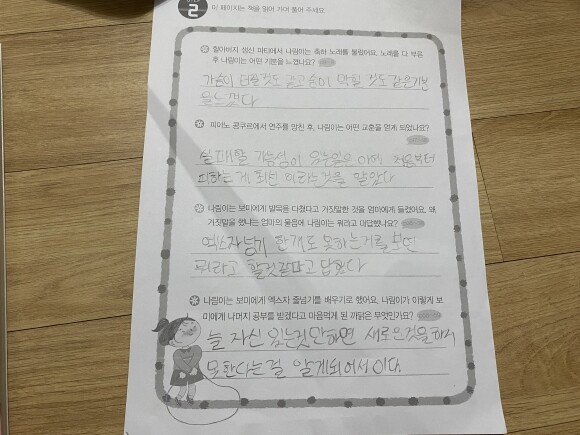 2 이 페이지는 책을 읽어 가며 풀어 주세요.
할아버지 생신 파티에서 나림이는 축하 노래를 불렀어요. 노래를 다 부른
후 나림이는 어떤 기분을 느꼈나요?
가슴이 터질것도 같고 숨이 막힐 것도 같은기분
을느꼈다
피아노 콩쿠르에서 연주를 망친 후, 나림이는 어떤 교훈을 얻게 되었나요?
실패할 가능성이 있는일은 아예 처음부터
피하는게 최선 이라는것을 알았다
나림이는 보미에게 발목을 다쳤다고 거짓말한 것을 엄마에게 들켰어요. 왜
거짓말을 했냐는 엄마의 물음에 나림이는 뭐라고 대답했나요?
엑스자넘기 한개도 못하는거를 보면
뭐라고 할것같다고 답했다
나림이는 보미에게 엑스자 줄넘기를 배우기로 했어요. 나림이가 이렇게 보
미에게 나머지 공부를 받겠다고 마음먹게 된 까닭은 무엇인가요?
늘 자신 있는것만하면 새로운것을하지
못한다는걸 알게되어서 이다